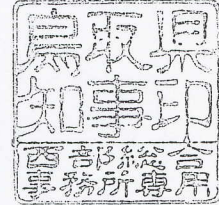 鳥取県
知事印
西部総合
事務所専用